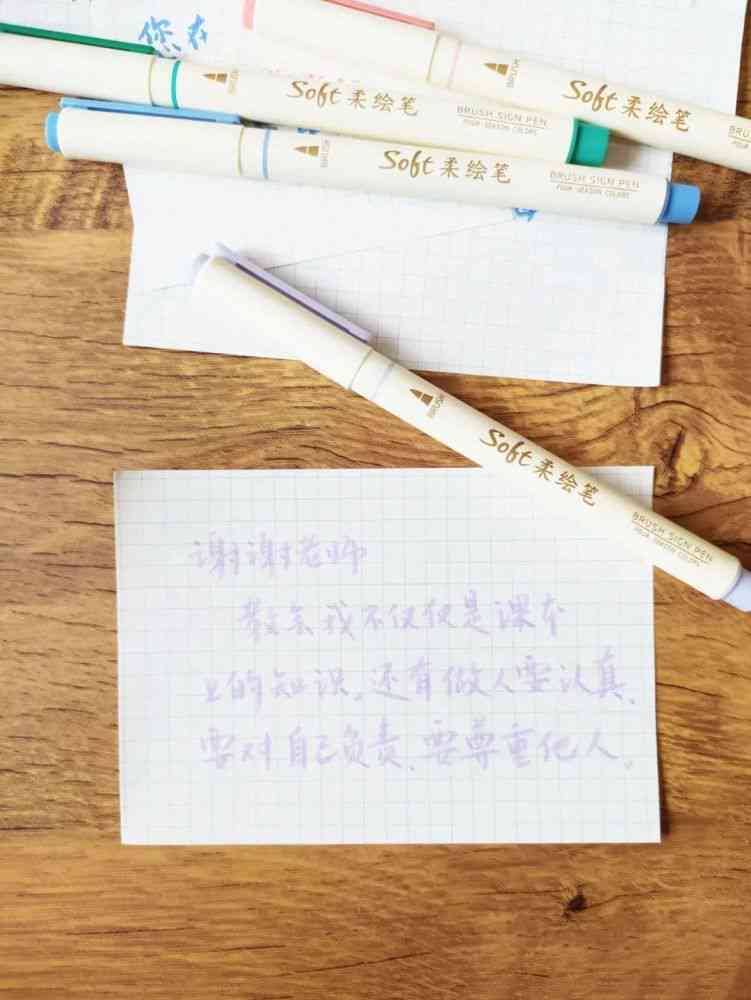 您在
BRUSH
Soft 柔绘笔
BRUSH
Soft 柔绘笔
BRUSH SIGN PEN
FOUR-SEASON COLORS
BRUSH
Soft 柔绘笔
BRUSH SIGN PEN
FOUR-SEASON COLORS
BRUSH
Soft 柔绘笔
BRUSH SIGN PEN
FOUR-SEASON COLORS
谢谢老师
教会我不仅仅是课本
上的知识。还有做人要认真、
要对自己负责、要尊重他人。